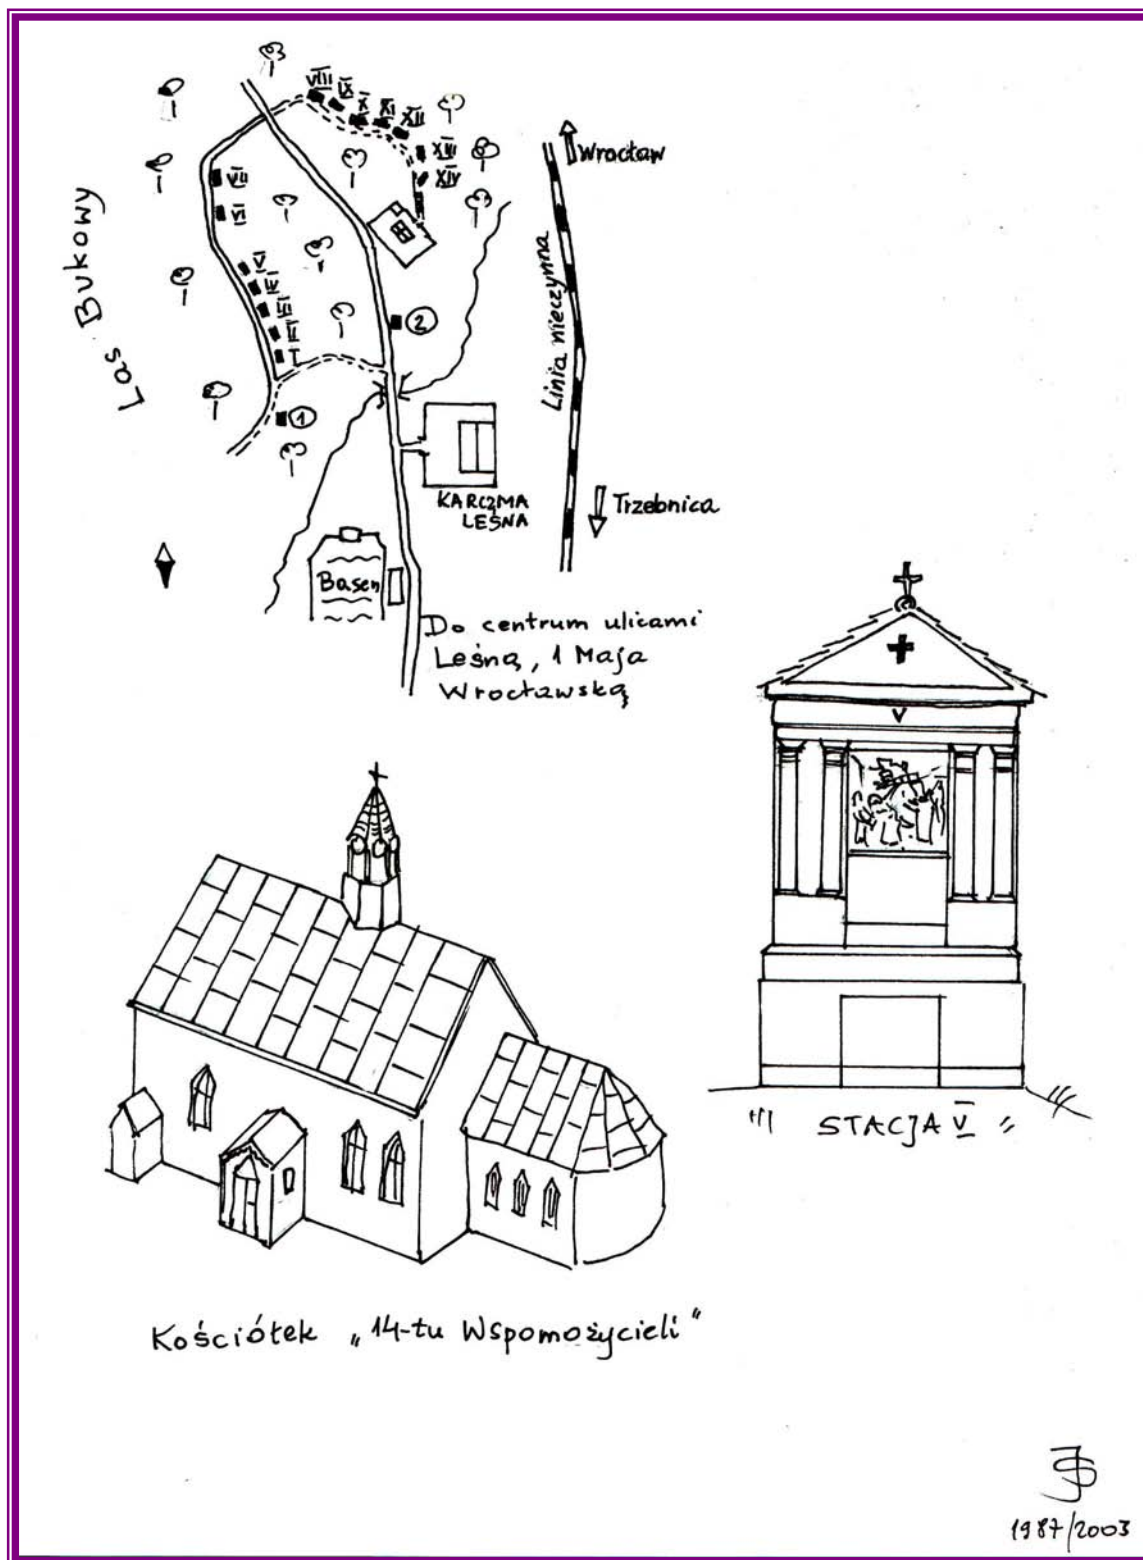 VIII
IX
X
XI
XII
XIII
XIV
VII
VI
V
IV
III
II
I
Las Bukowy
Wrocław
Linia nieczynna
Trzebnica
2
1
KARCZMA
LEŚNA
Basen
Do centrum ulicami
Leśną, 1 Maja
Wrocławską
V
STACJA V
Kościółek „14-tu Wspomożycieli"
JS
1987/2003